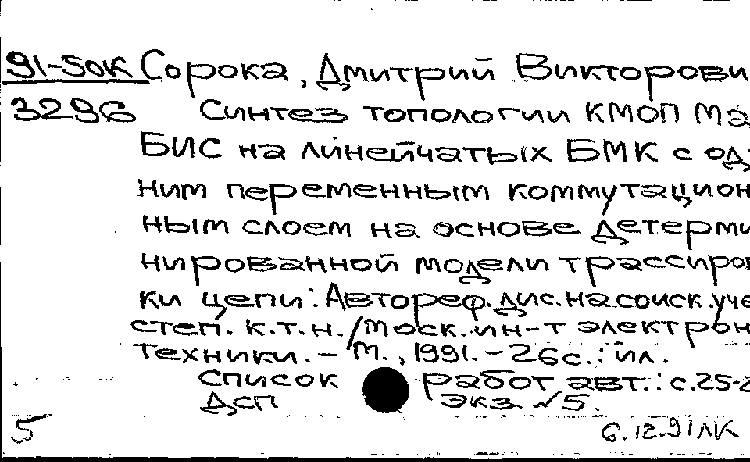 91-50К Сорока, Дмитрий Викторови
3296 Синтез топологии КМОП Ма
БИС на линейчатых БМК с од
ним переменным коммутацион
ным слоем на основе детерми
нированной модели трассиров
ки цепи: Автореф. дис. на соиск. уче
степ. к.т.н. / Моск. ин-т электрон
техники. - М., 1991. - 26с.: ил.
Список работ авт.: с.25-2
Дсп Экз. №5.
5 6.12.91 ЛК